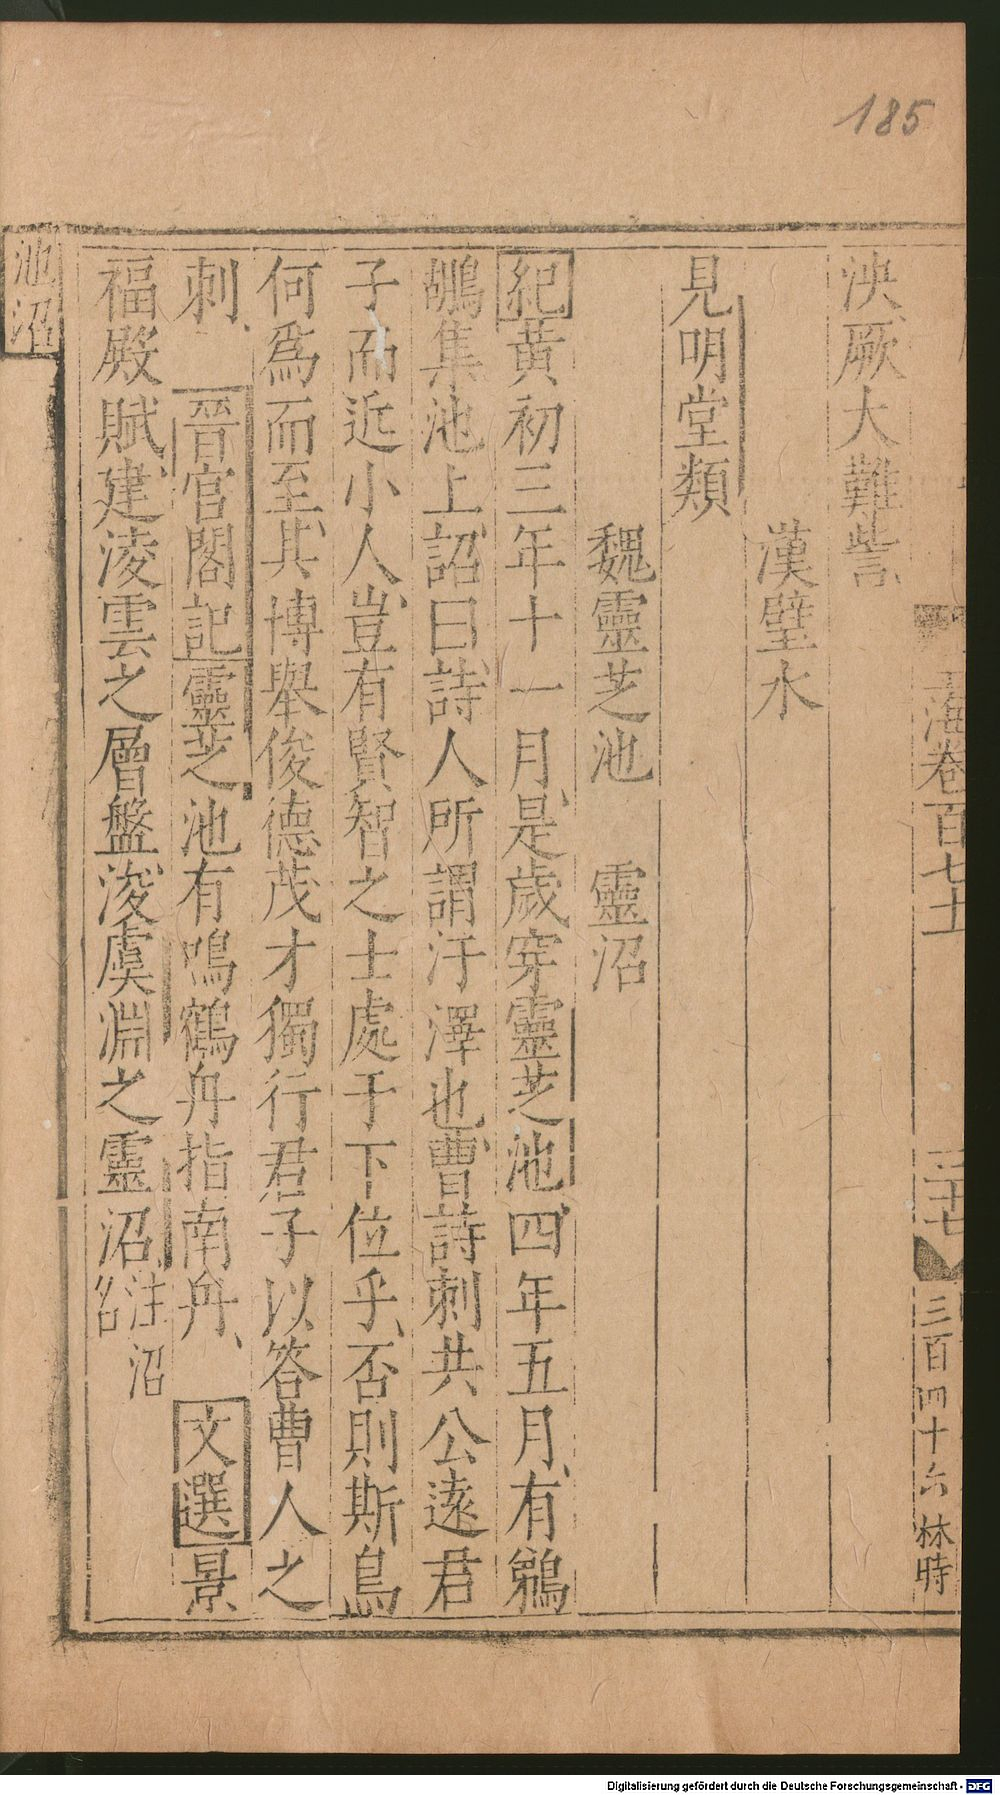 185
玉海卷百七十
三十七
三百四十六
林時
泱厥大難訾
漢璧水
見明堂類
魏靈芝池 靈沼
紀黄初三年十一月是歲穿靈芝池四年五月有鵜
鶘集池上詔曰詩人所謂汙澤也曹詩刺共公遠君
子而近小人豈有賢智之士處于下位乎否則斯鳥
何爲而至其博舉俊德茂才獨行君子以答曹人之
刺 晉宮閣記靈芝池有鳴鶴舟指南舟 文選景
福殿賦建淩雲之層盤浚虞淵之靈沼注沼名
池沼
Digitalisierung gefördert durch die Deutsche Forschungsgemeinschaft - DFG